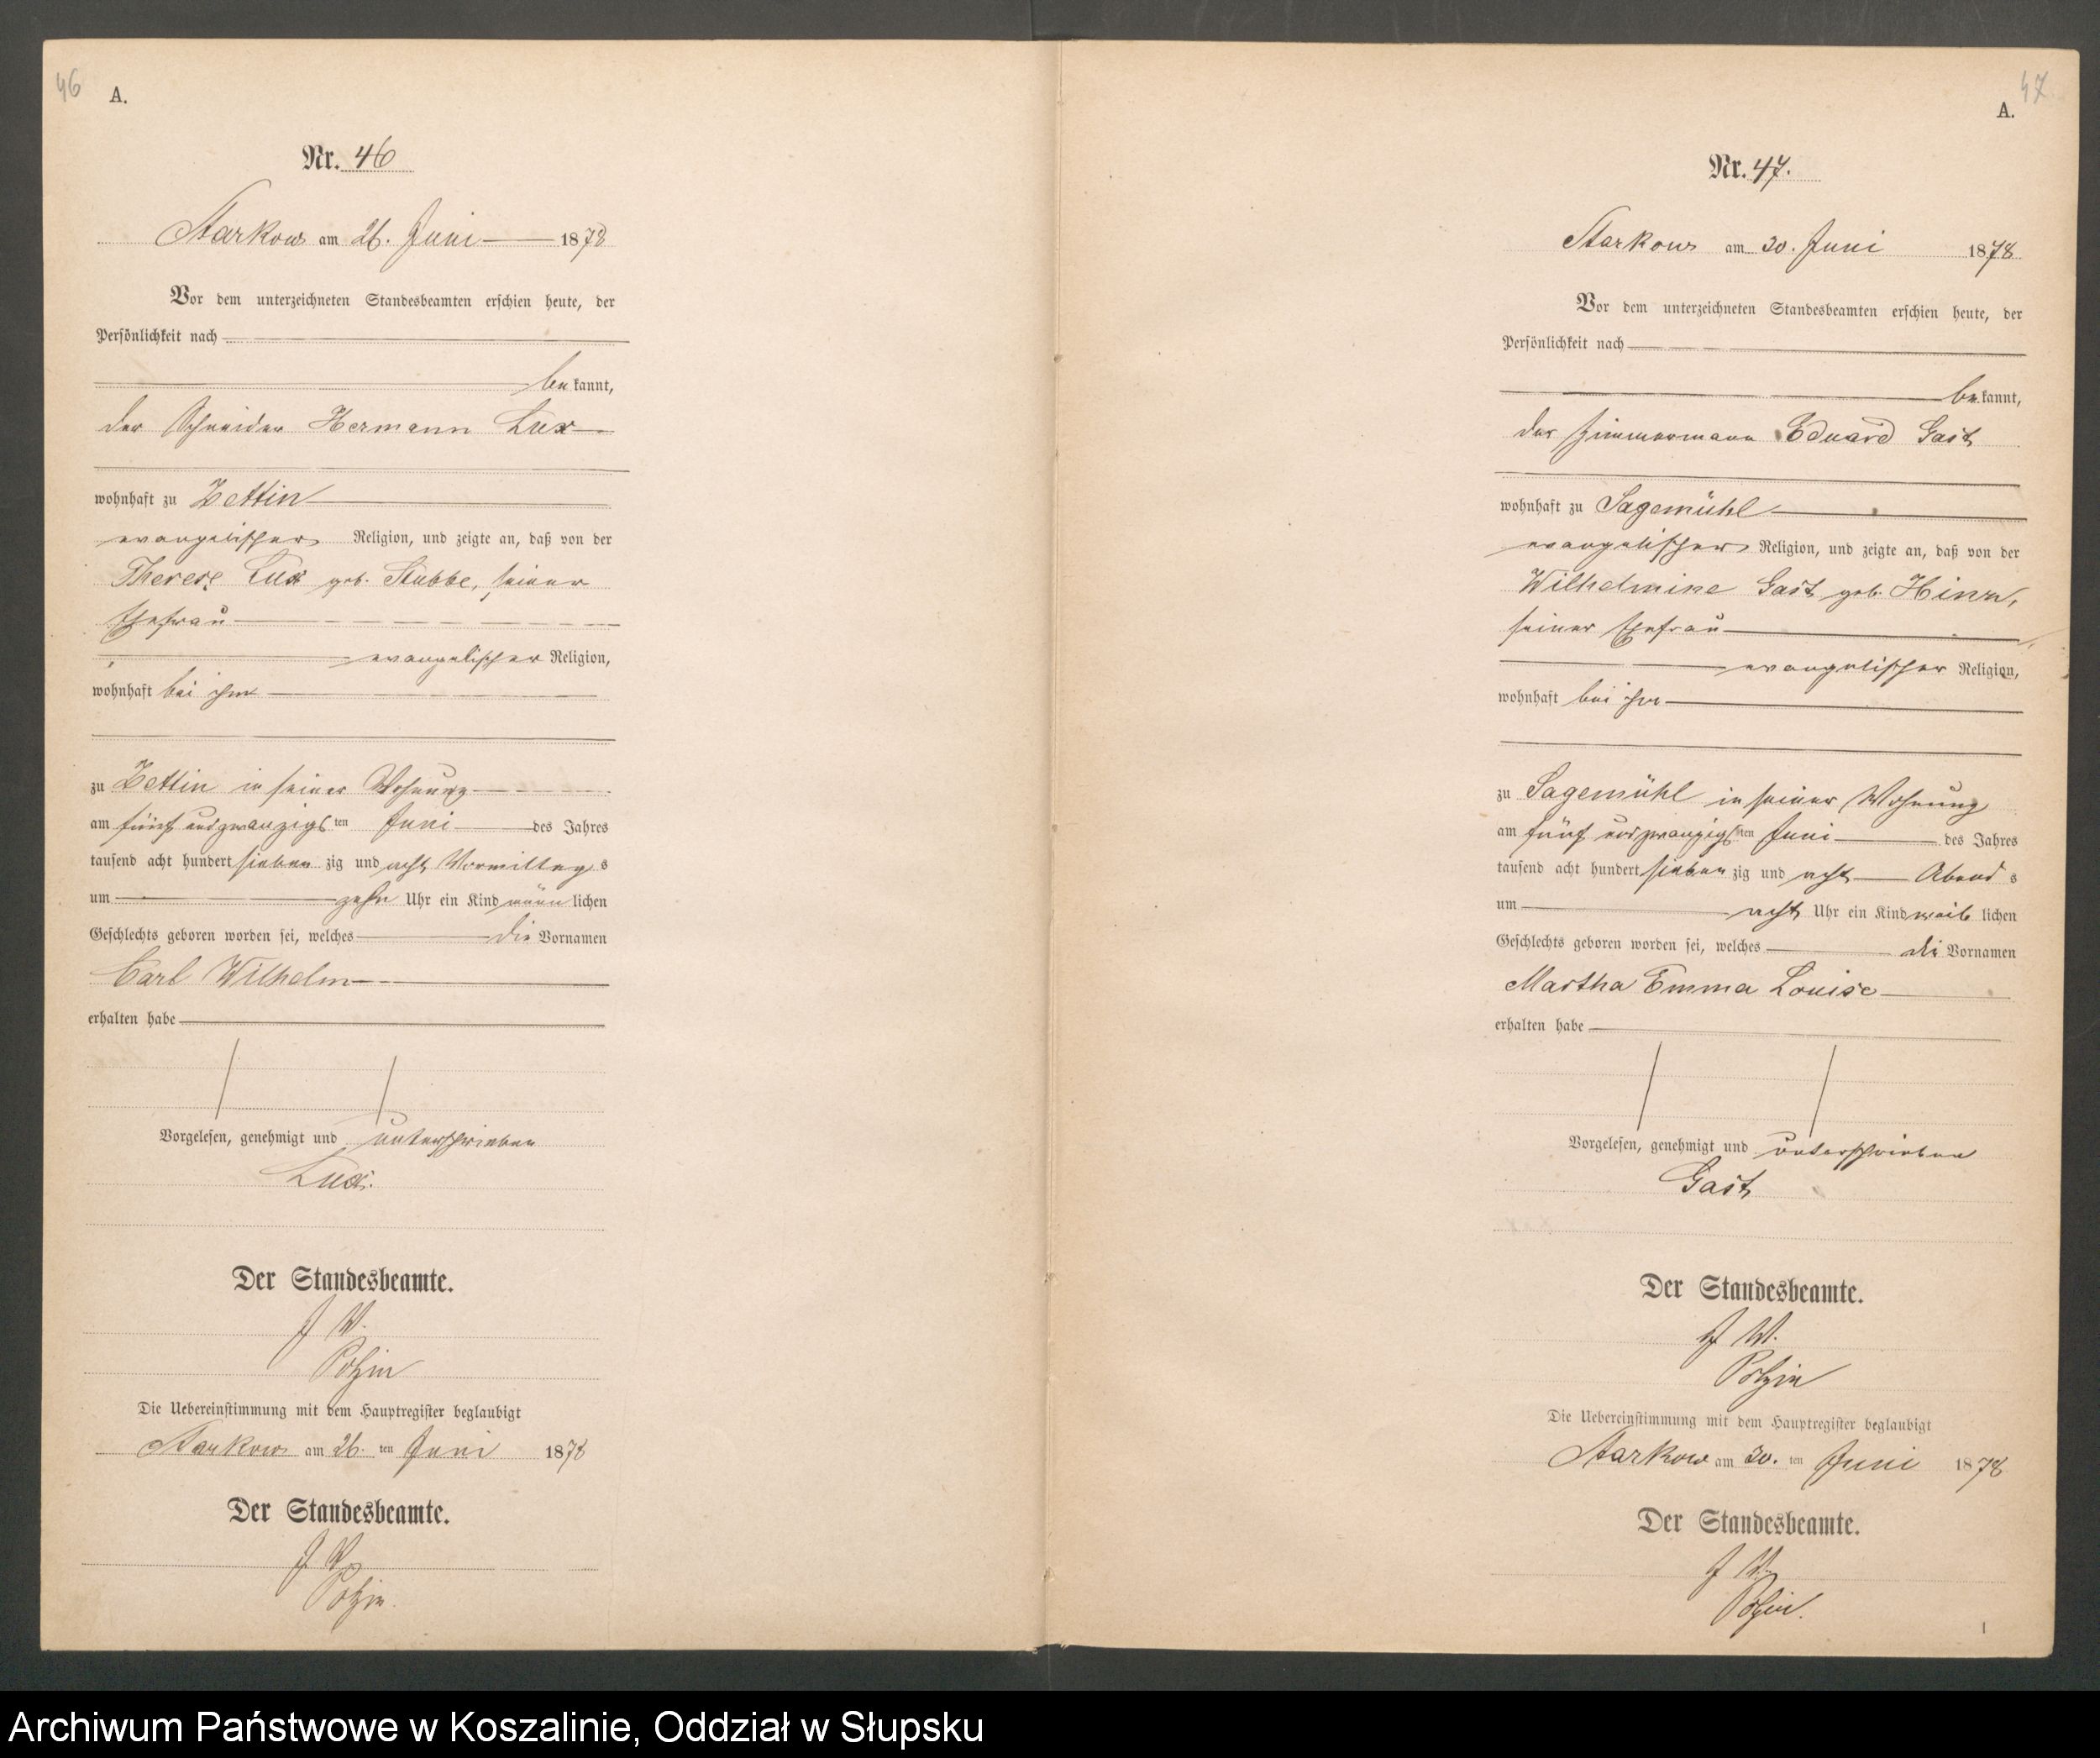 46
A.
Nr. 46
Starkow am 26. Juni 1878
Vor dem unterzeichneten Standesbeamten erschien heute, der
Persönlichkeit nach
bekannt,
der Schneider Hermann Lux
wohnhaft zu Zettin
evangelischer Religion, und zeigte an, daß von der
Therese Lux geb. Stubbe, seiner
Ehefrau
evangelischer Religion,
wohnhaft bei ihm
zu Zettin in seiner Wohnung
am fünf und zwanzigsten Juni des Jahres
tausend acht hundert siebenzig und acht Vormittags
um zehn Uhr ein Kind männlichen
Geschlechts geboren worden sei, welches die Vornamen
Carl Wilhelm
erhalten habe
Vorgelesen, genehmigt und unterschrieben
Lux.
Der Standesbeamte.
J. V.
Polzin
Die Uebereinstimmung mit dem Hauptregister beglaubigt
Starkow am 26. ten Juni 1878
Der Standesbeamte.
J. V.
Polzin.
47
A.
Nr. 47.
Starkow am 30. Juni 1878
Vor dem unterzeichneten Standesbeamten erschien heute, der
Persönlichkeit nach
bekannt,
der Zimmermann Eduard Gast
wohnhaft zu Sagemühl
evangelischer Religion, und zeigte an, daß von der
Wilhelmine Gast geb.
seiner Ehefrau
evangelischer Religion,
wohnhaft bei ihm
zu Sagemühl in seiner Wohnung
am fünf und zwanzigsten Juni des Jahres
tausend acht hundert siebenzig und acht Abends
um acht Uhr ein Kind weiblichen
Geschlechts geboren worden sei, welches die Vornamen
Martha Emma Louise
erhalten habe
Vorgelesen, genehmigt und unterschrieben
Gast
Der Standesbeamte.
J. V.
Polzin
Die Uebereinstimmung mit dem Hauptregister beglaubigt
Starkow am 30. ten Juni 1878
Der Standesbeamte.
J. V.
Polzin.
Archiwum Państwowe w Koszalinie, Oddział w Słupsku